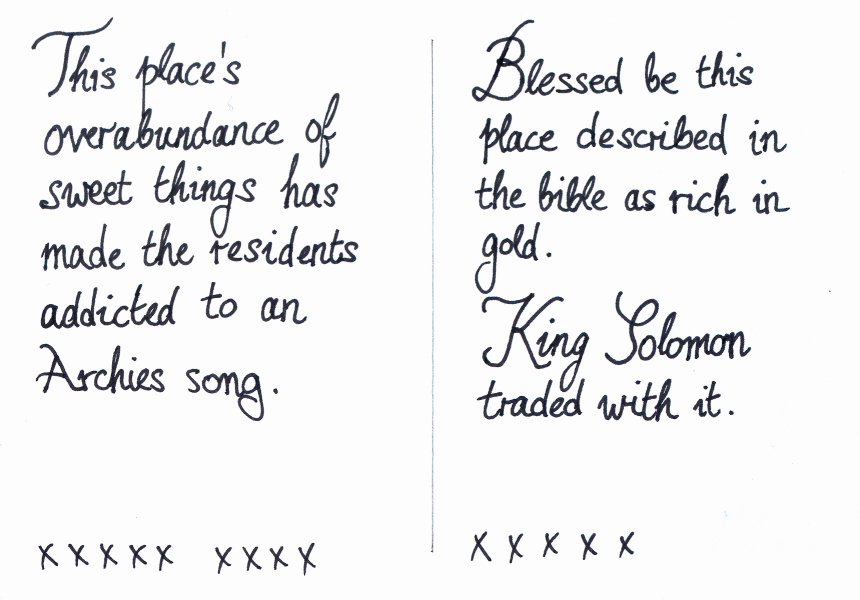 This place's
overabundance of
sweet things has
made the residents
addicted to an
Archies song.
xxxxx xxxx
Blessed be this
place described in
the bible as rich in
gold.
King Solomon
traded with it.
x x x x x